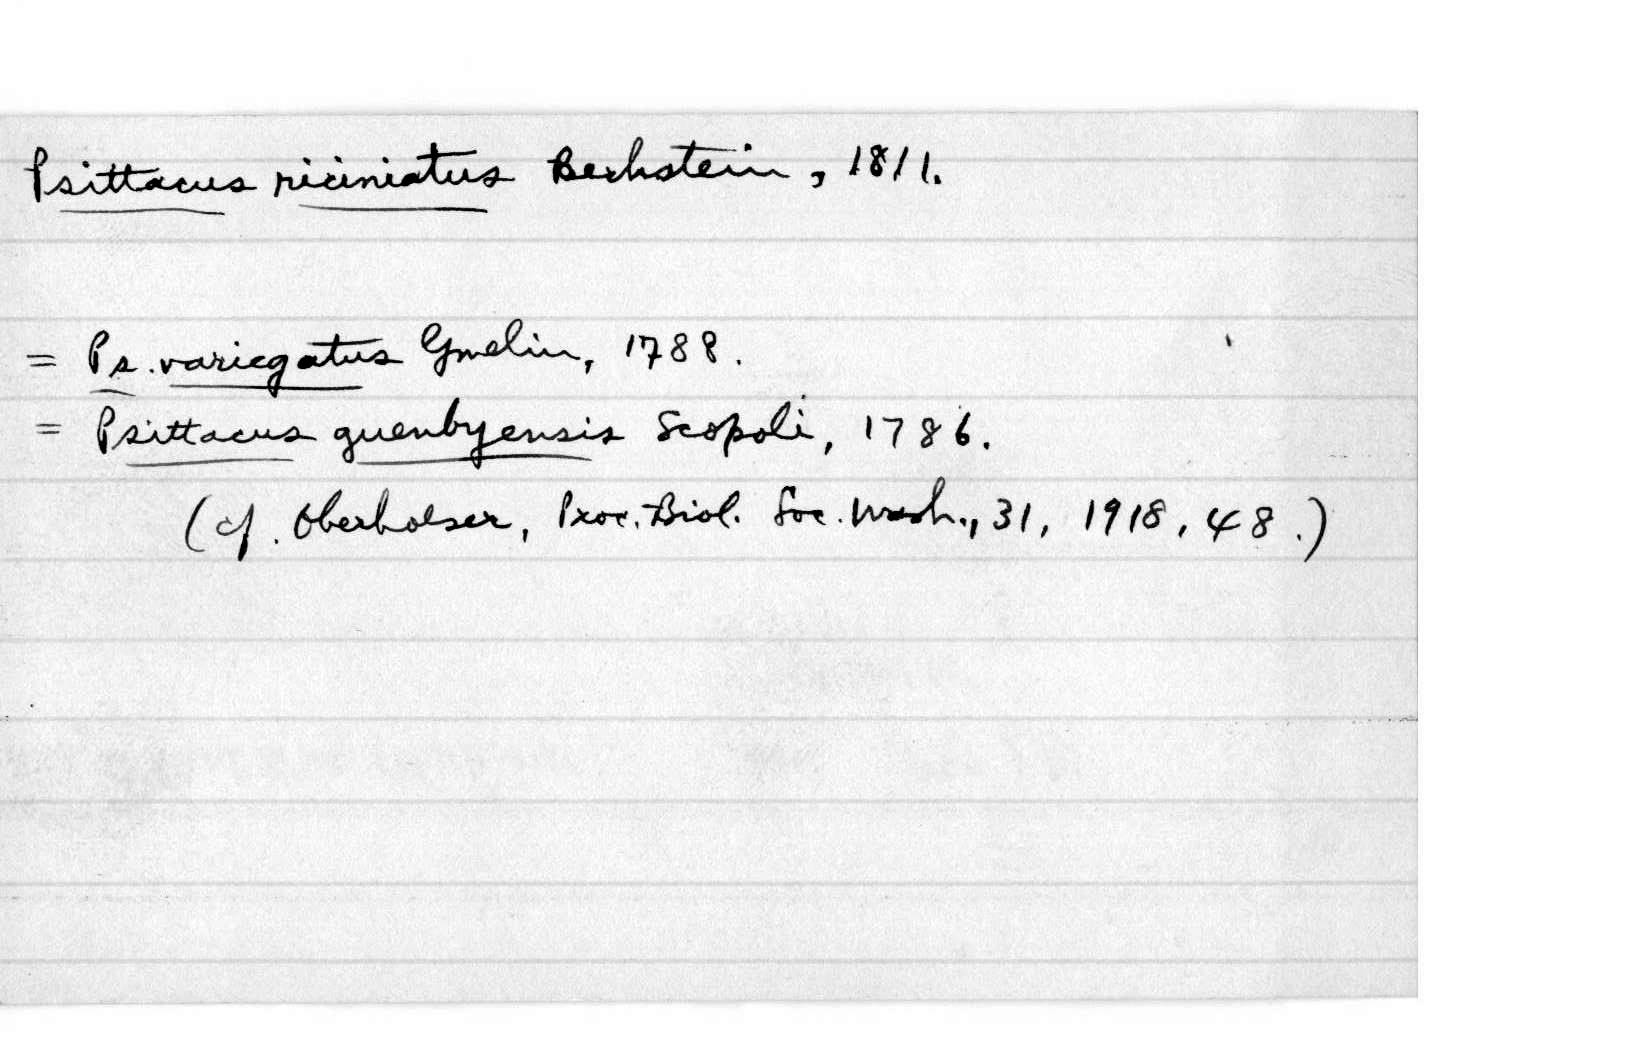 Psittacus riciniatus Bechstein, 1811.
= Ps. variegatus Gmelin, 1788.
= Psittacus guenbyensis Scopoli, 1786.
(cf. Oberholser, Proc. Biol. Soc. Wash., 31, 1918, 48.)